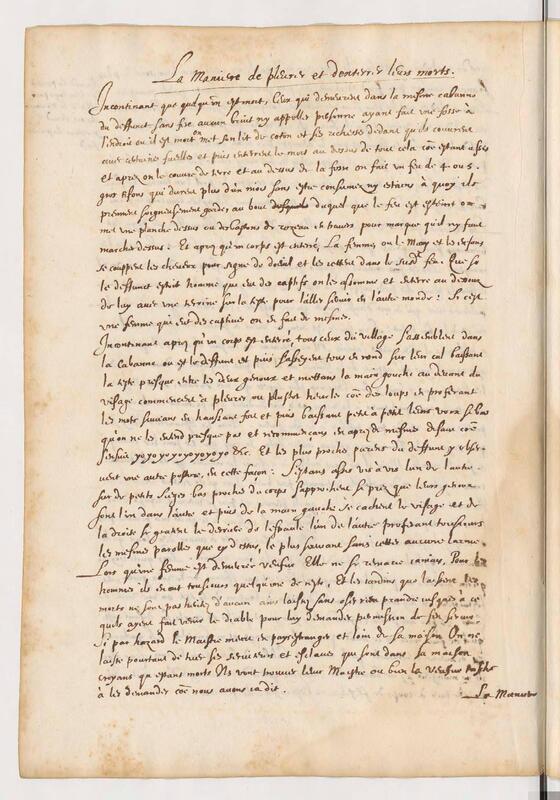 La Maniere de pleurer et d'enterrer leurs morts.
Incontinant que quelqu'un est mort, Ceux qui demeurent dans la mesme cabanne
du deffunct sans fre aucun bruit ny appeller personne ayant fait une fosse à
l'endroit ou il est mort on met son lit de coton et ses richesses dedans quils couurent
auec certaines fueilles et puis enterrent le mort au dessus de tout cela cõe estant assis
et apres on le couure de terre et au dessus de la fosse on fait un feu de 4 ou 5
gros tisons qui durent plus d'un mois sans estre consumez ny estains à quoy ils
prennent soigneusement garde, au bout duquel que le feu est esteint on
met une planche dessus ou des bastons de rozeau en trauers pour marque qu'il ny faut
marcher dessus. Et apres qu'un corps est enterré, La femme, ou le Mary et les enfans
se couppent les cheueux pour signe de doeuil et les iettent dans le susd. feu. Que si
le deffunct estoit homme qui eut des captifs on les assomme et enterre au dessous
de luy auec une terrine sur la teste pour l'aller seruir en l'autre monde: Si c'est
une femme qui eut des captiues on en fait de mesmes.
Incontinant apres qu'un corps est enterré, tous ceux du village s'assemblent dans
la Cabanne ou est le deffunct et puis s'asseyent tous en rond sur leur cul baissant
la teste presque entre les deux genoux et mettans la main gauche au deuant du
visage commencent à pleurer ou plustost heurler cõe des loups en proferant
les mots suiuans en haussant fort et puis baissant petit à petit leurs voix si bas
quon ne les entend presque pas et recommencans en apres de mesmes disant cõe
sensuit yoyoyoyoyoyoyoyo &c. Et les plus proches parens du deffunct y obser-
uent une autre posture, en cette façon: S'estans assis vis à vis l'un de l'autre
sur de petits sieges bas proche du corps s'approchent si prez que leurs genoux
sont l'un dans l'autre et puis de la main gauche se cachent le visage et de
la droite se gratent le derriere de l'espaule l'un de l'autre proferant tousiours
les mesmes parolles que cy dessus, le plus souuant sans ietter aucune larme
Lors qu'une femme est demeurée veufue Elle ne se remarie iamais, Pour les
hommes ils en ont tousiours quelqu'une de reste, Et les iardins que laissent les
morts ne sont pas heritez d'aucun ains laissez sans oser rien prendre iusques à ce
quils ayent fait venir le diable pour luy demander permission de s'en seruir
Si par hazard le Maistre meurt en pays estranger et loin de sa maison On ne
laisse pourtant de tuer ses seruiteurs et esclaues qui sont dans sa maison
croyant qu'estant morts Ils vont trouuer leur Maistre ou bien la
à les demander cõe nous auons ia dit.
La Maniere